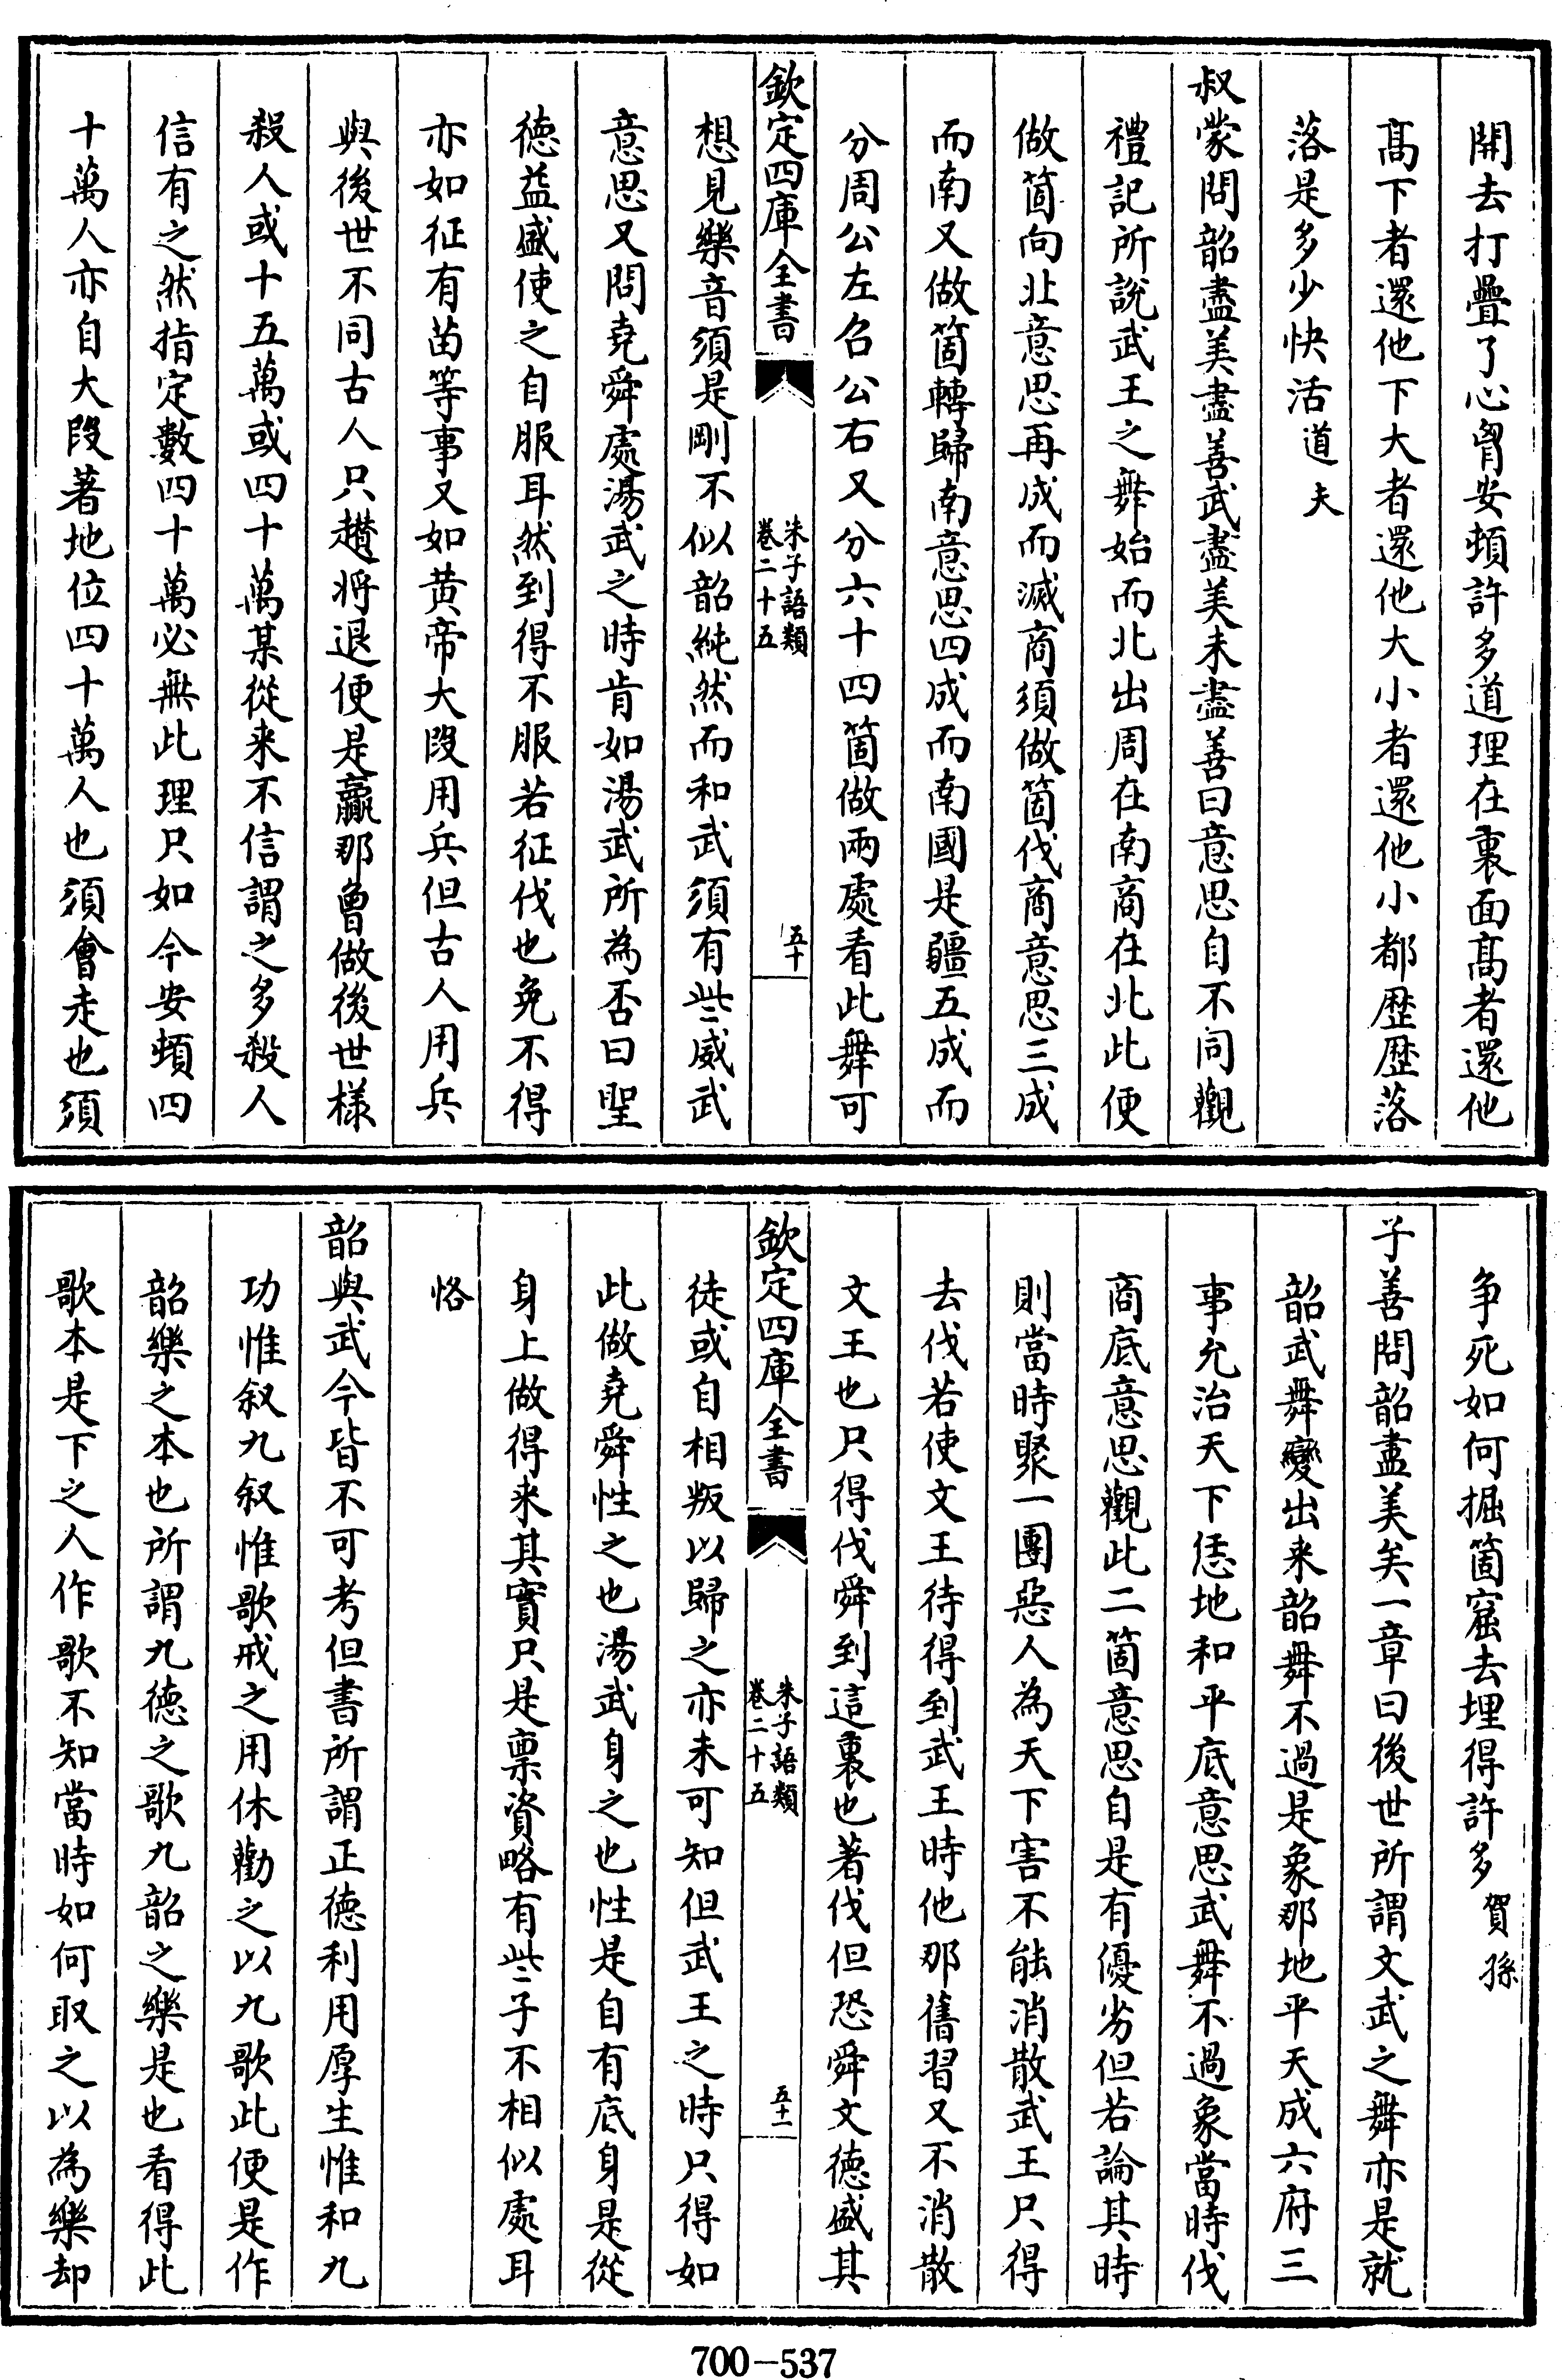 開去打疊了心胷安頓許多道理在裏面髙者還他
髙下者還他下大者還他大小者還他小都歴歴落
落是多少快活道夫
叔蒙問韶盡美盡善武盡美未盡善曰意思自不同觀
禮記所說武王之舞始而北出周在南商在北此便
做箇向北意思再成而滅商須做箇伐商意思三成
而南又做箇轉歸南意思四成而南國是疆五成而
分周公左召公右又分六十四箇做兩處看此舞可
欽定四庫全書
朱子語類
卷二十五
五十
想見樂音須是剛不似韶純然而和武須有些威武
意思又問堯舜處湯武之時肯如湯武所為否曰聖
德益盛使之自服耳然到得不服若征伐也免不得
亦如征有苗等事又如黄帝大段用兵但古人用兵
與後世不同古人只趲將退便是贏那曾做後世樣
殺人或十五萬或四十萬某從来不信謂之多殺人
信有之然指定數四十萬必無此理只如今安頓四
十萬人亦自大段著地位四十萬人也須會走也須
争死如何掘箇窟去埋得許多賀孫
子善問韶盡美矣一章曰後世所謂文武之舞亦是就
韶武舞變出来韶舞不過是象那地平天成六府三
事允治天下恁地和平底意思武舞不過象當時伐
商底意思觀此二箇意思自是有優劣但若論其時
則當時聚一團惡人為天下害不能消散武王只得
去伐若使文王待得到武王時他那舊習又不消散
文王也只得伐舜到這裏也著伐但恐舜文德盛其
欽定四庫全書
朱子語類
卷二十五
五十一
徒或自相叛以歸之亦未可知但武王之時只得如
此做堯舜性之也湯武身之也性是自有底身是從
身上做得来其實只是稟資略有些子不相似處耳
恪
韶與武今皆不可考但書所謂正德利用厚生惟和九
功惟叙九叙惟歌戒之用休勸之以九歌此便是作
韶樂之本也所謂九德之歌九韶之樂是也看得此
歌本是下之人作歌不知當時如何取之以為樂却
700-537